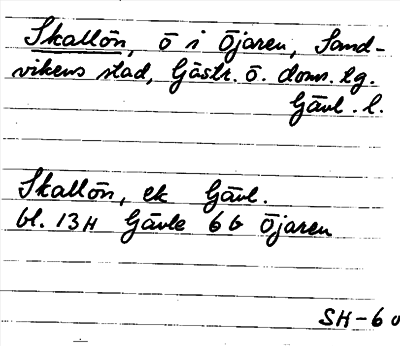 Skallön, ö i Öjaren, Sand-
vikens stad, Gästr. ö. doms. lg.
Gävl. l.
Skallön, ek Gävl.
bl. 13H Gävle 6b Öjaren
SH-60